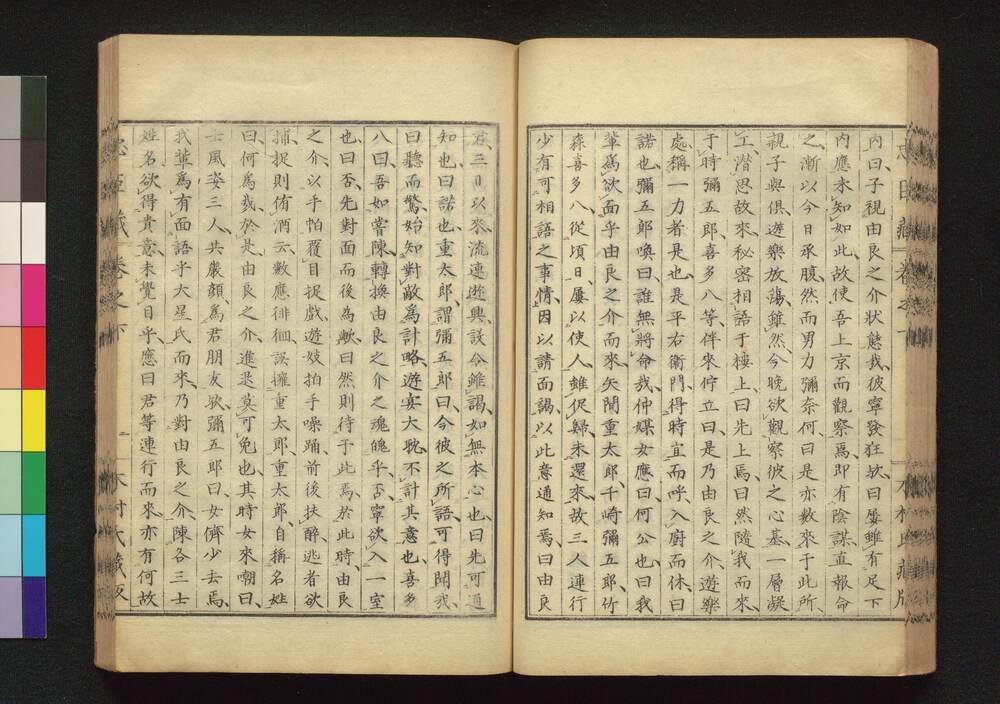 內曰子視由良之介狀態我彼寧發狂故曰屢雖有足下
內應未知如此故使吾上京而觀察焉即有陰謀直報命
之漸以今日承膜然而男力彌奈何曰是亦數來于此所
親子與俱遊樂放蕩雖然今晚欲觀察彼之心基一層凝
工潛思故來秘密相語于樓上曰先上焉曰然隨我而來
于時彌五郎喜多八等伴來佇立曰是乃由良之介遊樂
處稱一力者是也是平右衛門得時宜而呼入廚而休曰
諾也彌五郎喚曰誰無將命哉仲媒女應曰何公也曰我
輩爲欲面乎由良之介而來矢間重太郎千崎彌五郎竹
森喜多八從頃日屢以使人雖促歸未還來故三人連行
少有可相語之事情因以請面謁以此意通知焉曰由良
君三日以來流連遊興談令雖謁如無本心也曰先可通
知也曰諾也重太郎謂彌五郎曰今彼之所語可得聞我
曰聽而驚始知對敵爲計略遊宴大耽不計其意也喜多
八曰吾如嘗陳轉換由良之介之魂魄乎否寧欲入一室
也曰否先對面而後爲歟曰然則待于此焉於此時由良
之介以手帕覆目捉戲遊妓拍手噪踊前後扶醉逃者欲
捕捉則侑酒云數應徘徊誤擁重太郎重太郎自稱名姓
曰何爲哉於是由良之介進退莫可免也其時女來嘲曰
士風姿三人共嚴顏爲君朋友歟彌五郎曰女儕少去焉
我輩爲有面語乎大星氏而來乃對由良之介陳各三士
姓名欲得貴意未覺目乎應曰君等連行而來亦有何故
忠臣藏 卷之下
二
木村氏藏版